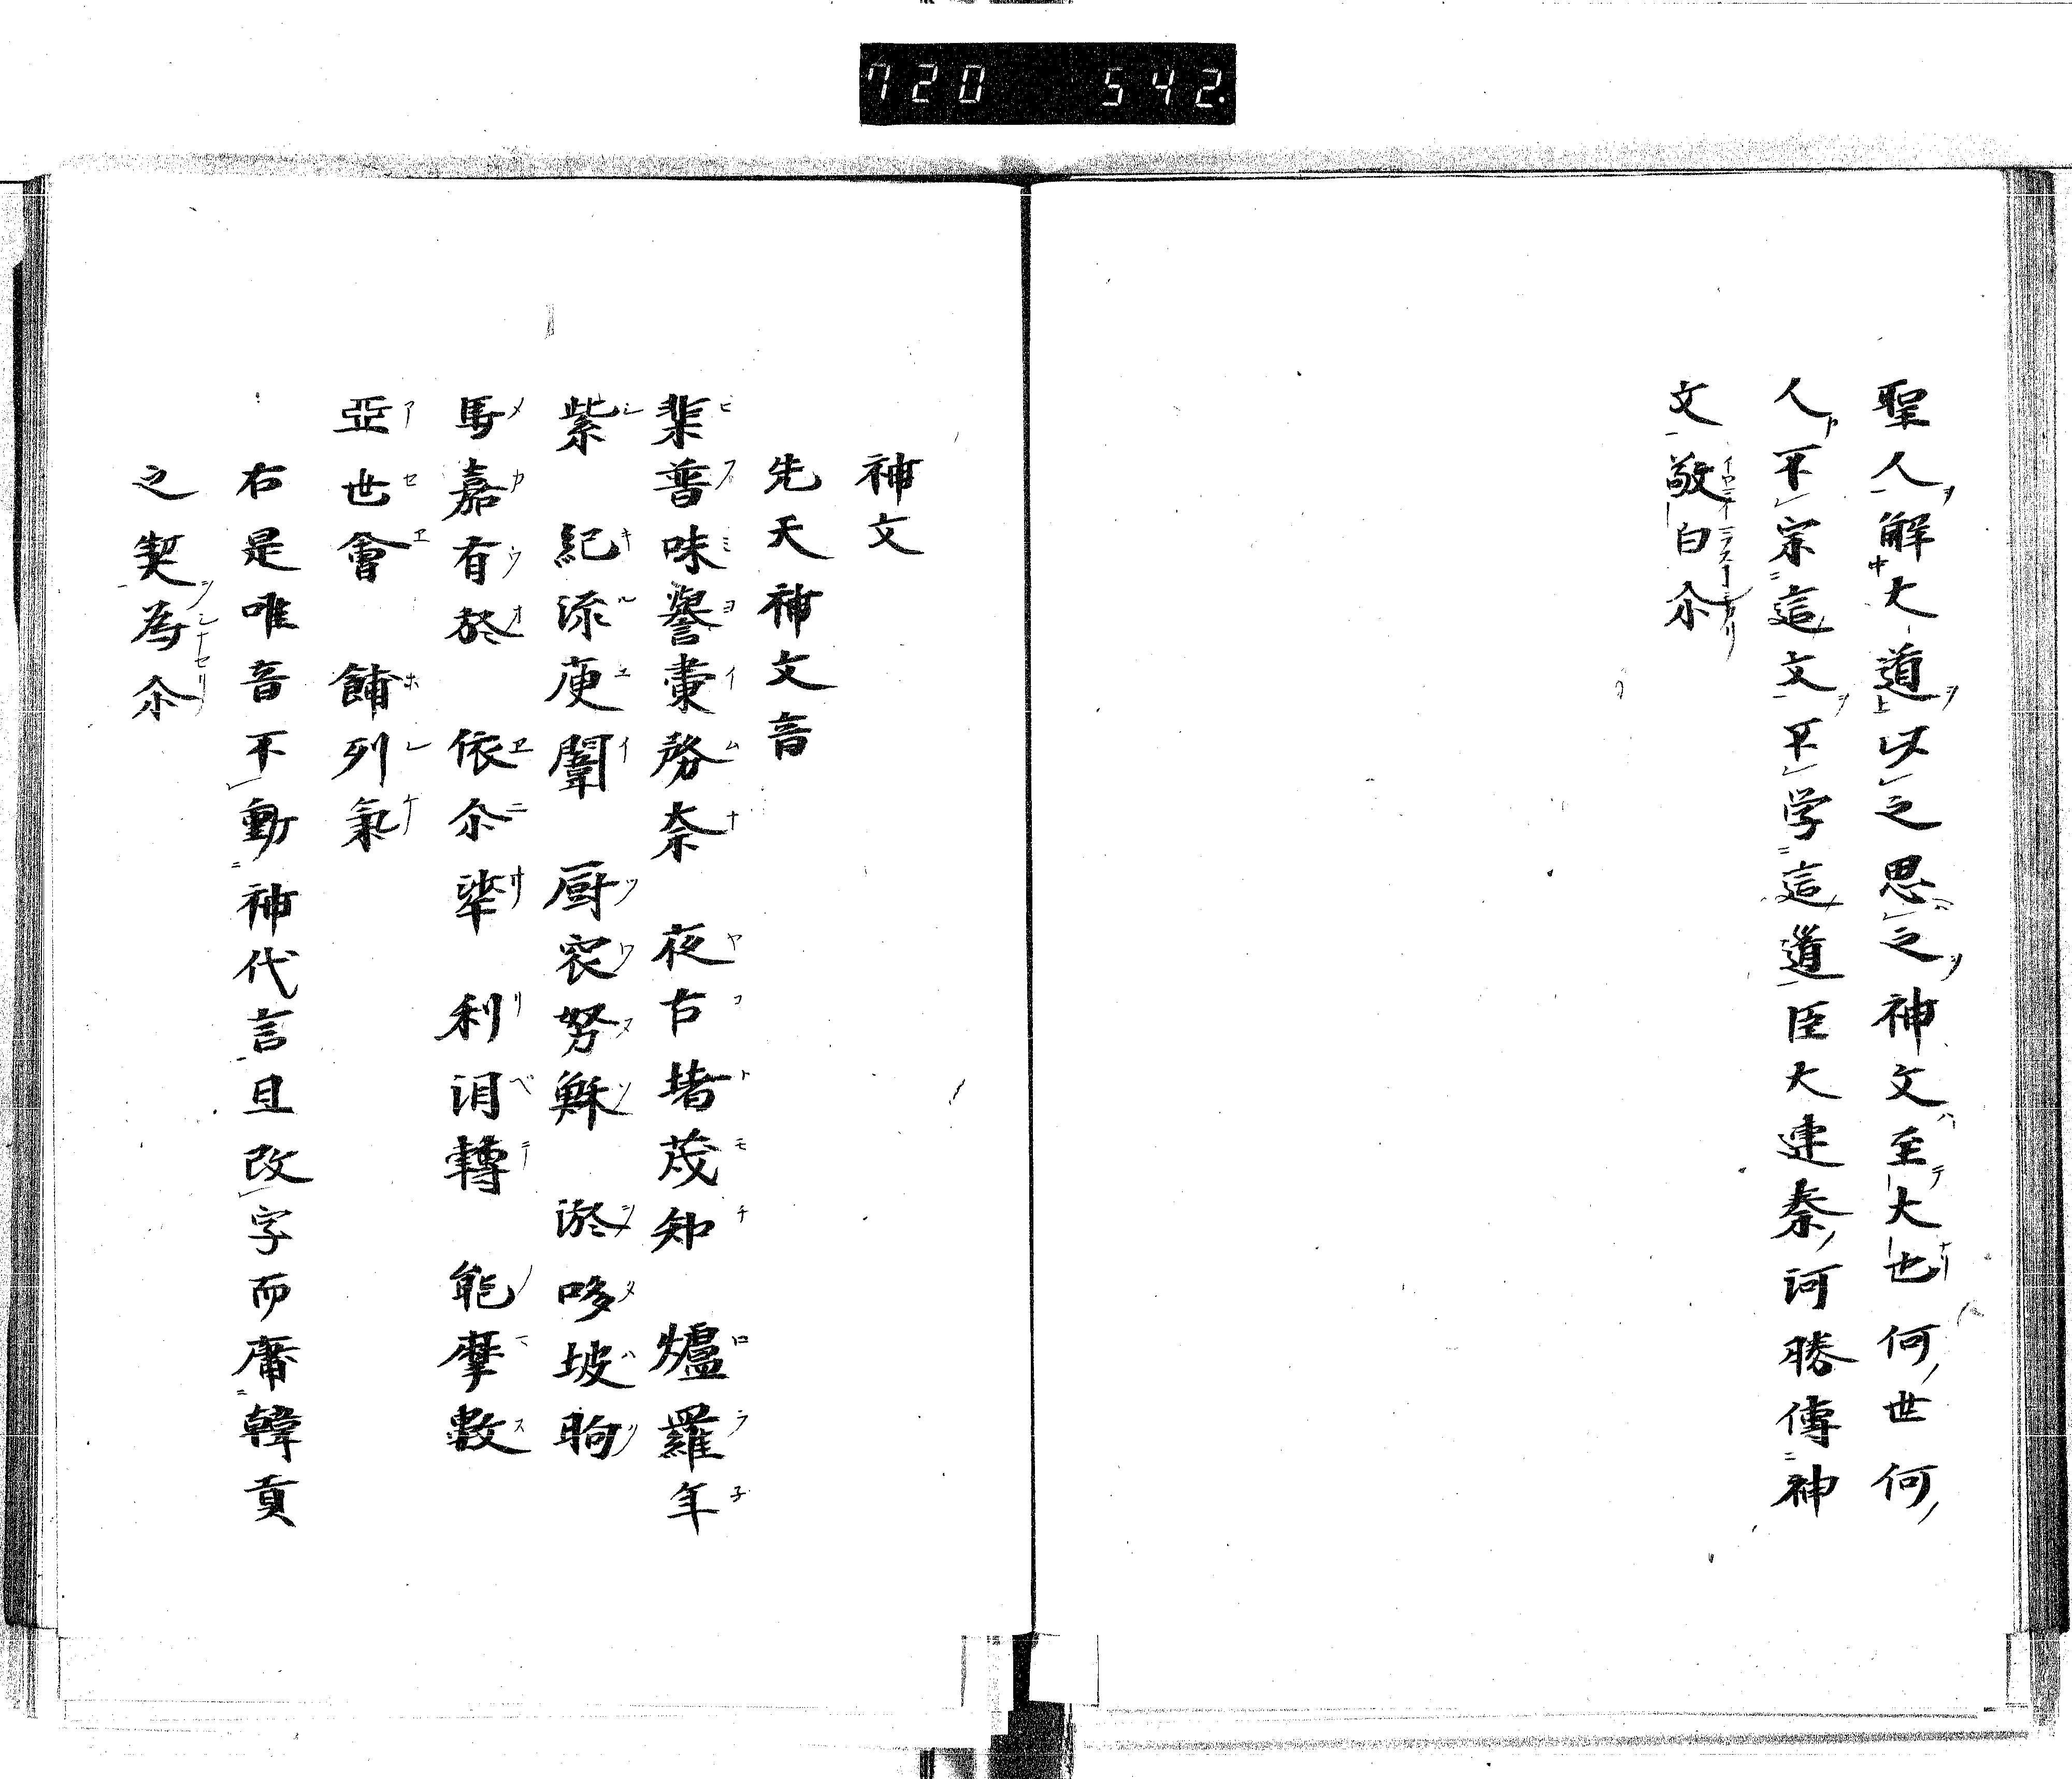 720 542.
聖人解大道以之思之神文至大也何世何
人不宗這文不学這道臣大連秦河勝傳神
文敬白尒
神文
先天神文音
棐普味譽橐務奈 夜古堵茂知 爐羅年
紫 紀流庾闈 厨衮努穌 淤哆坡昫
馬嘉有於 依尒犂 利泪轉 能摩數
亞世會 餔列氣
右是唯音不動神代言且改字而庸韓貢
之契為尒